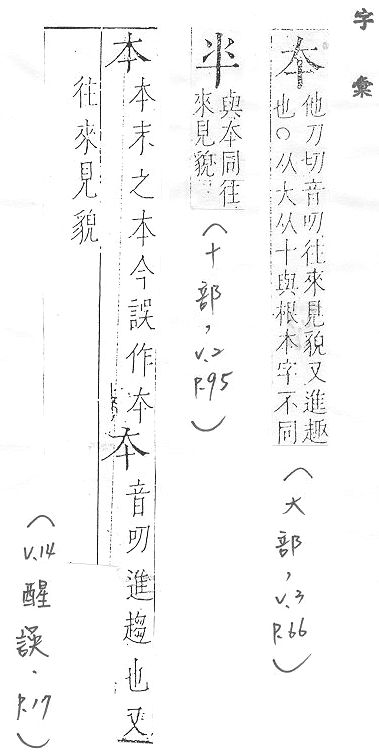 字彙
夲
他刀切音叨往來見貌又進趣
也○从大从十與根本字不同
（大部，V.3 P.66）
與夲同往
來見貌
（十部，V.2 P.95）
本 本末之本今誤作夲 夲 音叨進趨也又
往來見貌
（V.14 醒誤．P.17）